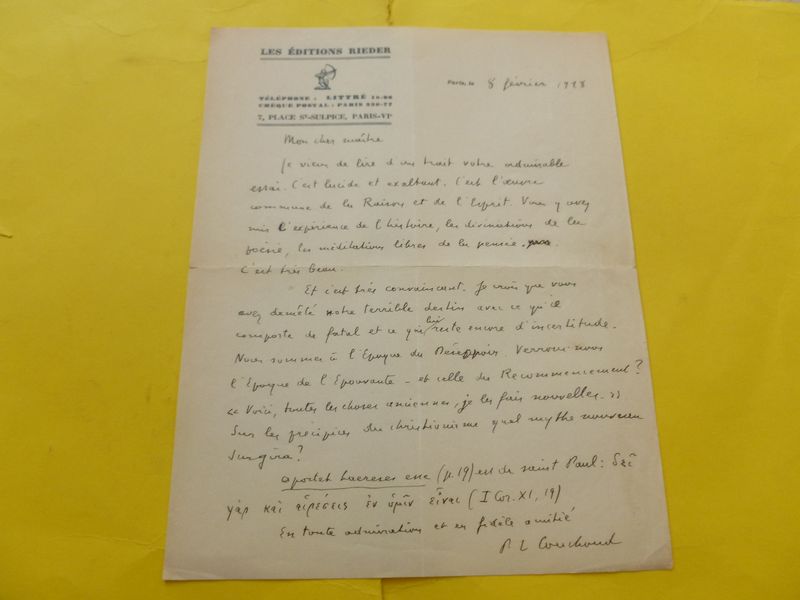 LES ÉDITIONS RIEDER
TÉLÉPHONE : LITTRÉ
CHÈQUE POSTAL : PARIS
7, PLACE St-SULPICE, PARIS-VIe
Paris, le 8 février
Mon cher maître
Je viens de lire d'un trait votre admirable
essai. C'est lucide et exaltant. C'est l'œuvre
commune de la Raison et de l'Esprit. Vous y avez
mis l'expérience de l'histoire, les divinations de la
poésie, les méditations libres de la pensée.
C'est très beau.
Et c'est très convaincant. Je crois que vous
avez démêlé notre terrible destin avec ce qu'il
comporte de fatal et ce qui lui reste encore d'incertitude.
Nous sommes à l'Epoque du Désespoir. Verrons-nous
l'Epoque de l'Epouvante – et celle du Recommencement ?
« Voici, toutes les choses anciennes, je les fais nouvelles. »
Sur les précipices du christianisme quel mythe nouveau
surgira ?
oportet haereses esse (p. 19) est de saint Paul : δεῖ
γὰρ καὶ αἱρέσεις ἐν ὑμῖν εἶναι (I Cor. XI, 19)
En toute admiration et en fidèle amitié
P. L Couchoud